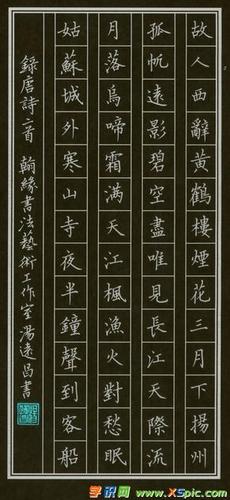 故人西辭黃鶴樓煙花三月下揚州
孤帆遠影碧空盡唯見長江天際流
月落烏啼霜滿天江楓漁火對愁眠
姑蘇城外寒山寺夜半鐘聲到客船
錄唐詩二首 翰緣書法藝術工作室湯遠昌書
学识网 www.XSpic.com